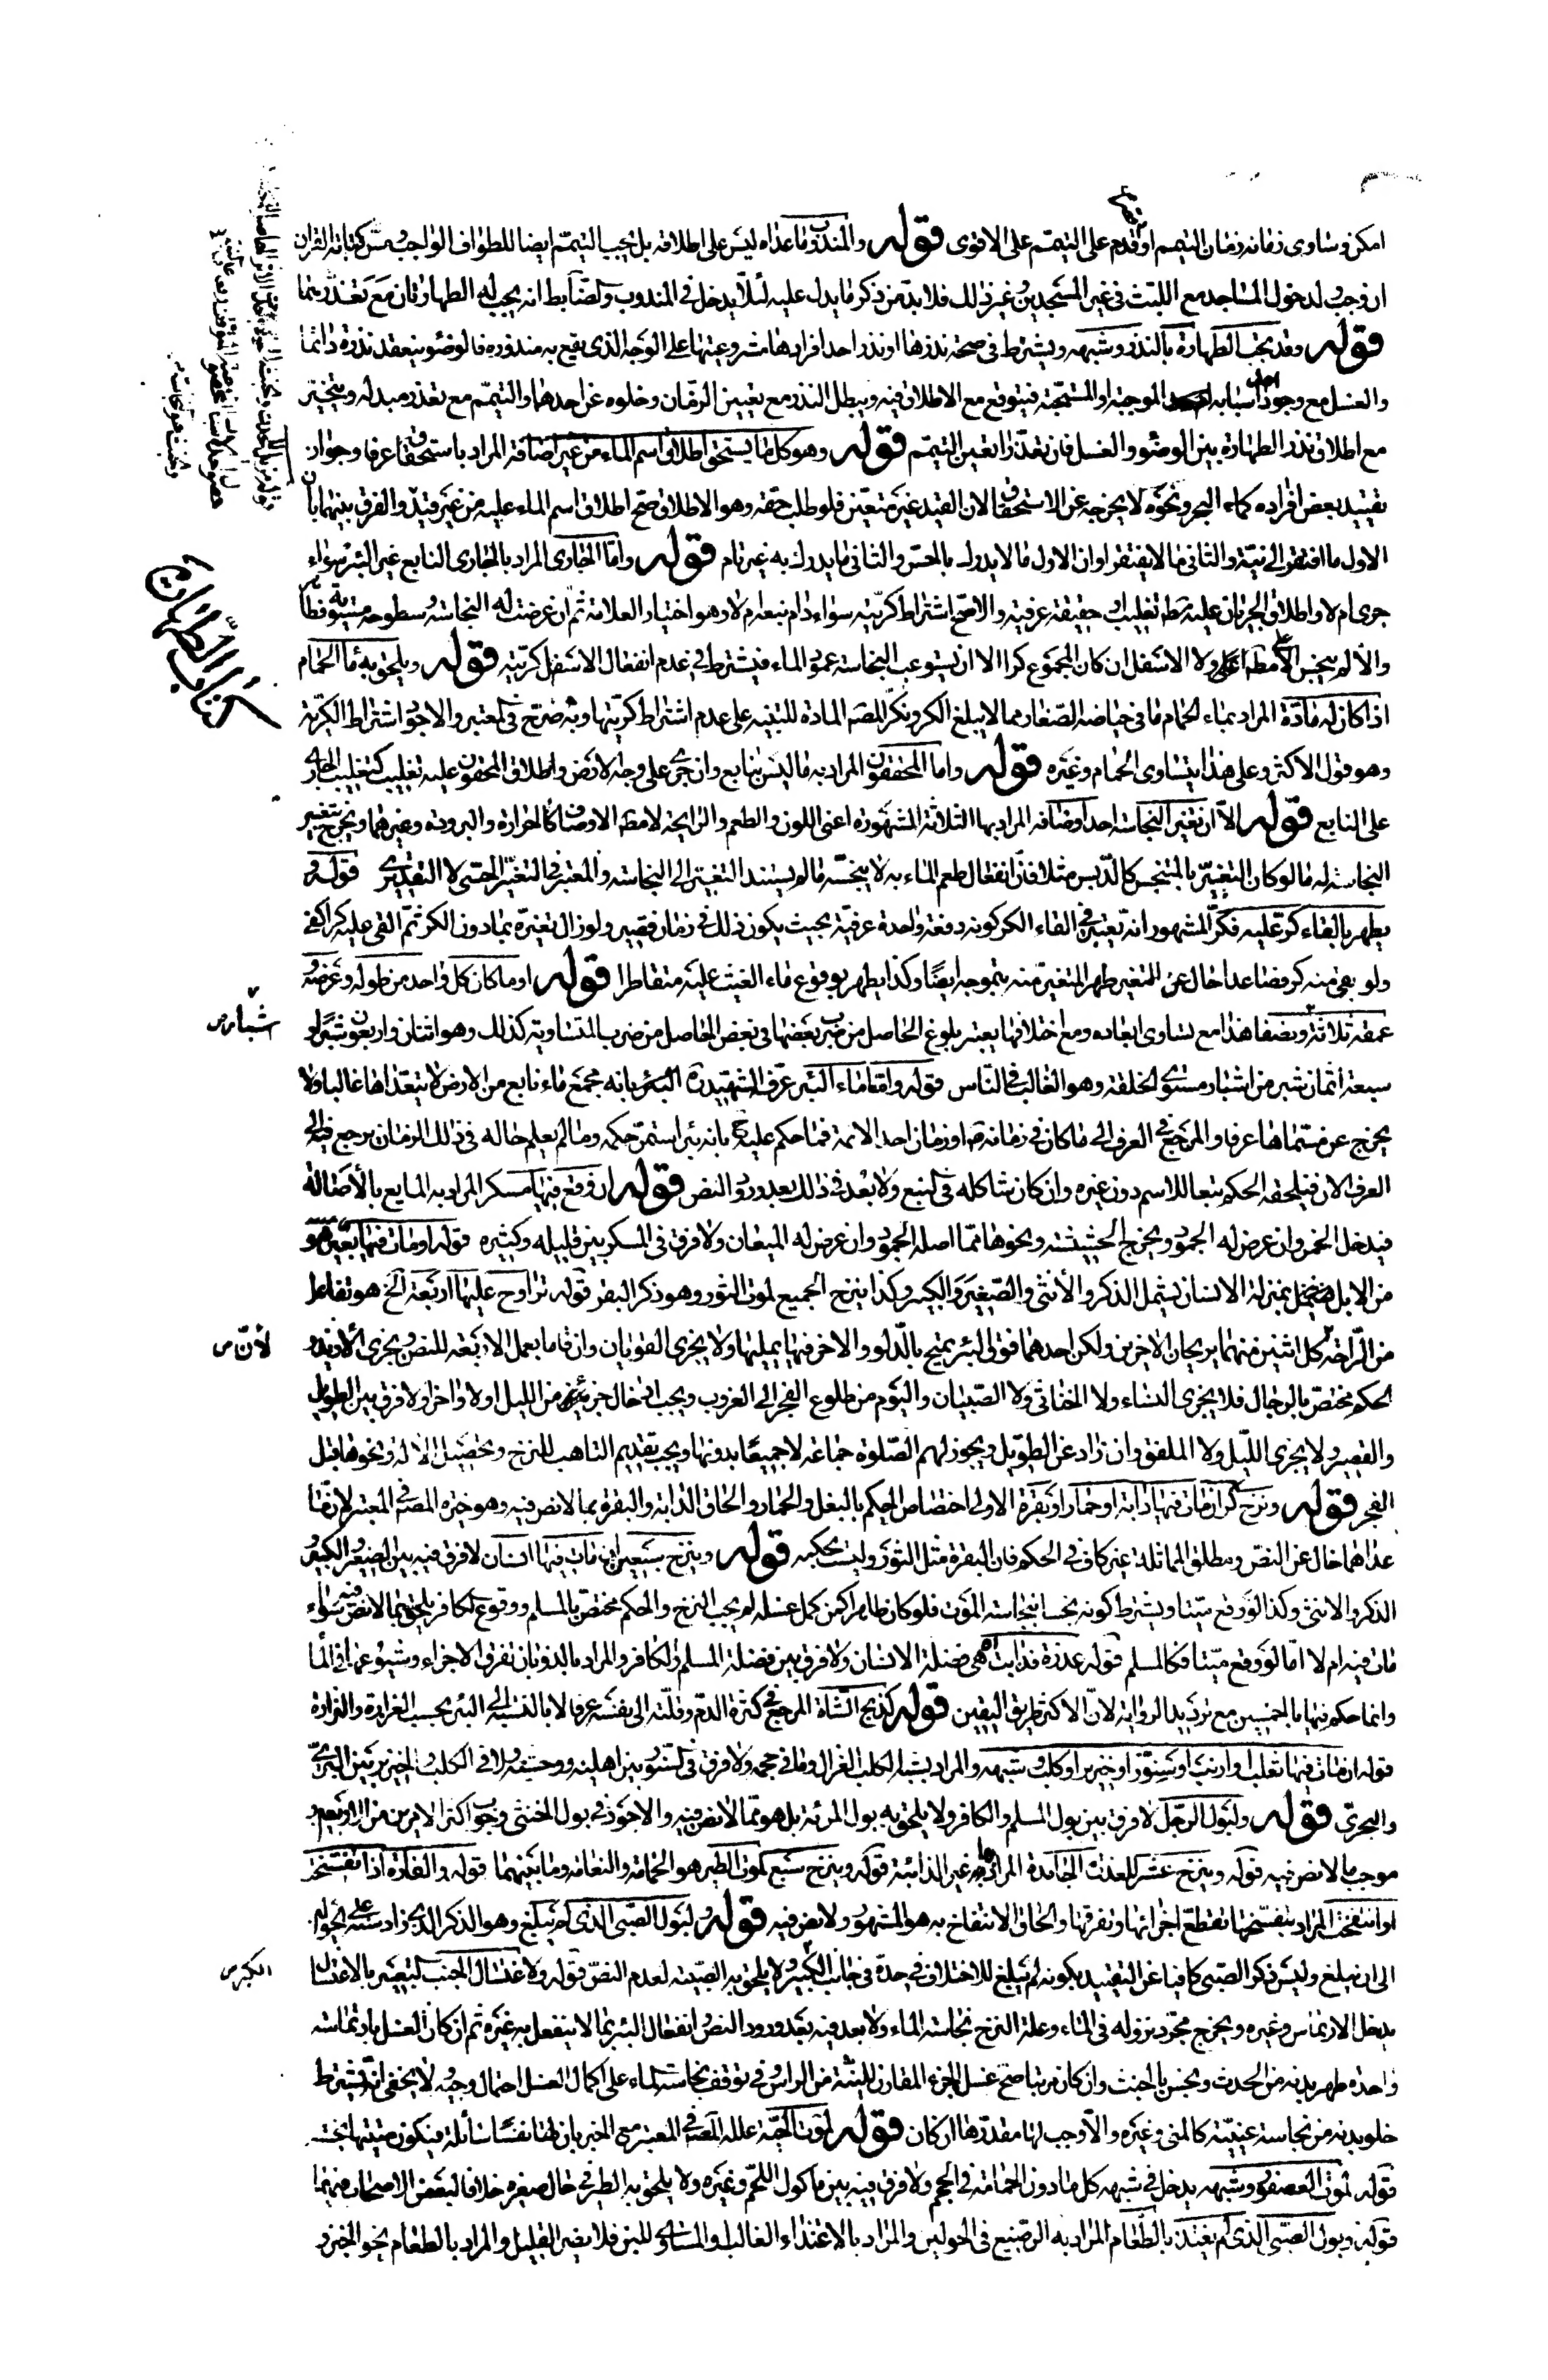 امكن وتساوى زمانه زمان التيمم او قدم على التيمم على الاقوى قوله والمندوب ما عداه ليس على اطلاقه بل يجب التيمم ايضا للطواف الواجب ومس كتابة القران
ان وجب ولدخول المساجد مع اللبث في غير المسجدين وغير ذلك فلا بد من ذكر ما يدل عليه لئلا يدخل في المندوب والضابط انه يجب لما يجب له الطهارتان مع تعذرهما
قوله وقد تجب الطهارة بالنذر وشبهه ويشترط في صحة نذرها او نذر احد افرادها مشروعيتها على الوجه الذي يقع به منذوره فالوضوء ينعقد نذره دائما
والغسل مع وجود احد اسبابه الموجبة او المستحبة فيتوقع مع الاطلاق فيه ويبطل النذر مع تعيين الزمان وخلوه عن احدهما والتيمم مع تعذر مبدله ويتخير
مع اطلاق نذر الطهارة بين الوضوء والغسل فان تعذرا تعين التيمم قوله وهو كل ما يستحق اطلاق اسم الماء من غير اضافة المراد باستحقاق عرفا وجواز
تقييد بعض افراده كماء البحر ونحوه لا يخرجه عن الاستحقاق لان القيد غير متعين فلو طلب حقه وهو الاطلاق صح اطلاق اسم الماء عليه من غير قيد والفرق بينهما بان
الاول ما افتقر الى نية والثاني ما لا يفتقر او ان الاول ما لا يدرك بالحس والثاني ما يدرك به غير تام قوله واما الجاري المراد بالجاري النابع غير البئر سواء
جرى ام لا واطلاق الجريان عليه مط تغليب او حقيقة عرفية والاصح اشتراط كريته سواء دام نبعه ام لا وهو اختيار العلامة ثم ان عرضت له النجاسة وسطوحه مستوية فظاهر
والا لم ينجس الاعلى مطلقا ولا الاسفل ان كان المجموع كرا الا ان يستوعب النجاسة عمود الماء فيشترط في عدم انفعال الاسفل كريته قوله ويلحق به ماء الحمام
اذا كان له مادة المراد بماء الحمام ما في حياضه الصغار مما لا يبلغ الكر ونكر المصنف المادة للتنبيه على عدم اشتراط كريتها وبه صرح في المعتبر والاجود اشتراط الكرية
وهو قول الاكثر وعلى هذا يتساوى الحمام وغيره قوله واما المحقون المراد به ما ليس بنابع وان جرى على وجه الارض واطلاق المحقون عليه تغليب كتغليب الجاري
على النابع قوله الا ان تغير النجاسة احد اوصافه المراد بها الثلاثة المشهورة اعني اللون والطعم والرائحة لا مط الاوصاف كالحرارة والبرودة وغيرهما وخرج بتغيير
النجاسة له ما لو كان التغير بالمتنجس كالدبس مثلا فان انفعال طعم الماء به لا ينجسه ما لم يستند التغيير الى النجاسة والمعتبر في التغير الحسي لا التقديري قوله و
يطهر بالقاء كر عليه فكر المشهور انه يعتبر في القاء الكر كونه دفعة واحدة عرفية بحيث يكون ذلك في زمان قصير ولو زال تغيره بما دون الكر ثم القى عليه كر اكفى
ولو بقى منه كر فصاعدا خال عن المتغير طهر المتغير منه بتموجه ايضا وكذا يطهر بوقوع ماء الغيث عليه متقاطرا قوله او ما كان كل واحد من طوله وعرضه
عمقه ثلاثة ونصفا هذا مع تساوى ابعاده ومع اختلافها يعتبر بلوغ الحاصل من ضرب بعضها في بعض الحاصل من ضرب المتساوية كذلك وهو اثنان واربعون شبرا و
سبعة اثمان شبر من اشبار مستوى الخلقة وهو الغالب في الناس قوله واما ماء البئر عرف الشهيد ره البئر بانه مجمع ماء نابع من الارض لا يتعداها غالبا ولا
يخرج عن مسماها عرفا والمرجع في العرف الى ما كان في زمانه ص او زمان احد الائمة فما حكم عليه ح بانه بئر استمر حكمه وما لم يعلم حاله في ذلك الزمان يرجع فيه الى
العرف الان فيلحقه الحكم تبعا للاسم دون غيره وان كان مشاكله في النبع ولا بعد في ذلك بعد ورود النص قوله ان وقع فيها مسكر المراد به المايع بالاصالة
فيدخل الخمر وان عرض له الجمود ويخرج الحشيشة ونحوها مما اصله الجمود وان عرض له الميعان ولا فرق في المسكر بين قليله وكثيره قوله او مات فيها بعير هو
من الابل بمنزلة الانسان يشمل الذكر والانثى والصغير والكبير وكذا ينزح الجميع لموت الثور وهو ذكر البقر قوله تراوح عليها اربعة الخ هو تفاعل
من الراحة كل اثنين منهما يريحان الاخرين ولكن احدهما فوق البئر يمتح بالدلو والاخر فيها يمليها ولا يجزي القويان وان قاما بعمل الاربعة للنص ويجزي الازيد و
الحكم مختص بالرجال فلا يجزي النساء ولا الخناثى ولا الصبيان واليوم من طلوع الفجر الى الغروب ويجب ادخال جزء من الليل اولا واخرا ولا فرق بين الطويل
والقصير ولا يجزي الليل ولا الملفق وان زاد عن الطويل ويجوز لهم الصلوة جماعة لا جميعا بدونها ويجب تقديم التاهب للنزح وتحصيل الالة ونحوها قبل
الفجر قوله ونزح كر ان مات فيها دابة او حمار او بقرة الاولى اختصاص الحكم بالبغل والحمار والحاق الدابة والبقرة بما لا نص فيه وهو خيرة المصنف في المعتبر لان ما
عداهما خال عن النص ومطلق المماثلة غير كاف في الحكم فان البقرة مثل الثور وليست بحكمه قوله وينزح سبعين ان مات فيها انسان لا فرق فيه بين الصغير والكبير و
الذكر والانثى وكذا لو وقع ميتا ويشترط كونه نجسا بنجاسة الموت فلو كان طاهرا كمن كمل غسله لم يجب النزح والحكم مختص بالمسلم ووقوع الكافر يلحق بما لا نص فيه سواء
مات فيه ام لا اما لو وقع ميتا فكالمسلم قوله عذرة فذابت اه هي فضلة الانسان ولا فرق بين فضلة المسلم والكافر والمراد بالذوبان تفرق الاجزاء وشيوعها في الماء
وانما حكم فيها بالخمسين مع ترديد الرواية لان الاكثر طريق اليقين قوله كذبح الشاة المرجع في كثرة الدم وقلته الى نفسه عرفا لا بالنسبة الى البئر بحسب الغزارة والنزارة
قوله ان مات فيها ثعلب او ارنب او سنور او خنزير او كلب وشبهه والمراد بشبه الكلب الغزال وما في حجمه ولا فرق في السنور بين اهليه ووحشيه ولا في الكلب والخنزير بين البري
والبحري قوله ولبول الرجل لا فرق بين بول المسلم والكافر ولا يلحق به بول المرئة بل هو مما لا نص فيه والاجود في بول الخنثى وجوب اكثر الامرين من الاربعين و
موجب ما لا نص فيه قوله وينزح عشر للعذرة الجامدة المراد بها غير الذائبة قوله وينزح سبع لموت الطير هو الحمامة والنعامة وما بينهما قوله والفارة اذا تفسخت
او انتفخت المراد بتفسخها تقطع اجزائها وتفرقها والحاق الانتفاخ به هو المشهور ولا نص فيه قوله ولبول الصبي الذي لم يبلغ وهو الذكر الذي زاد سنه على الحولين
الى ان يبلغ وليس ذكر الصبي كافيا عن التقييد بكونه لم يبلغ للاختلاف في حده في جانب الكبر ولا يلحق به الصبية لعدم النص قوله ولاغتسال الجنب التعبير بالاغتسال
يدخل الارتماس وغيره ويخرج مجرد نزوله في الماء وعلة النزح نجاسة الماء ولا بعد فيه بعد ورود النص وانفعال البئر بما لا ينفعل به غيره ثم ان كان الغسل بارتماسة
واحدة طهر بدنه من الحدث ونجس بالخبث وان كان مرتبا صح غسل الجزء المقارن للنية من الراس وفي توقف نجاسة الماء على اكمال الغسل احتمال وجيه لا يخفى انه يشترط
خلو بدنه من نجاسة عينية كالمني وغيره والا وجب لها مقدرها ان كان قوله لموت الحية علله المصنف في المعتبر مع الخبر بان لها نفسا سائلة فيكون ميتتها نجسة
قوله لموت العصفور وشبهه يدخل في شبهه كل ما دون الحمامة في الحجم ولا فرق فيه بين ماكول اللحم وغيره ولا يلحق به الطير في حال صغره خلافا لبعض الاصحاب فيهما
قوله وبول الصبي الذي لم يغتذ بالطعام المراد به الرضيع في الحولين والمراد بالاغتذاء الغالب والمساوي للبن فلا يضر القليل والمراد بالطعام نحو الخبز و
كتاب الطهارت
اشبار ص
لان ص
الكبر ص